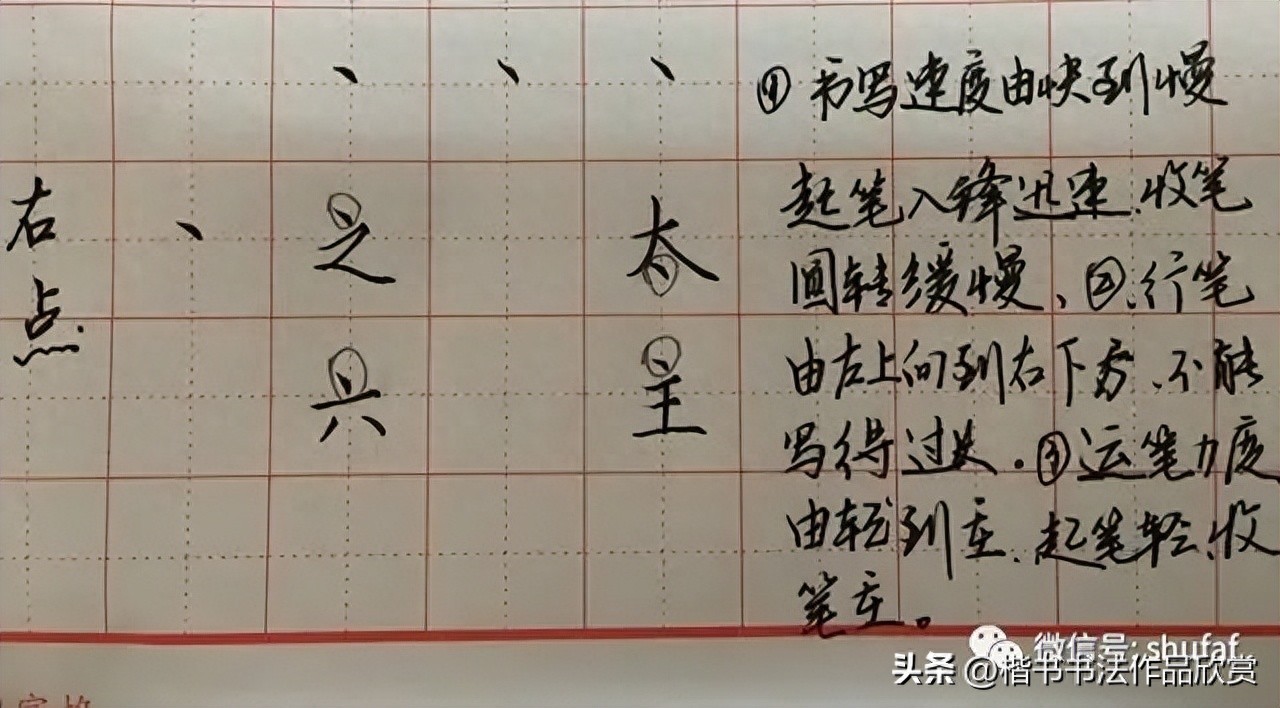 右点.
、
、 、 、
之 太
六 主
① 书写速度由快到慢
起笔入锋迅速.收笔
回转缓慢、②.行笔
由左上向到右下方.不能
写得过 。③运笔力度
由轻到重.起笔轻.收
笔重。
微信号: shufaf
头条 @楷书书法作品欣赏